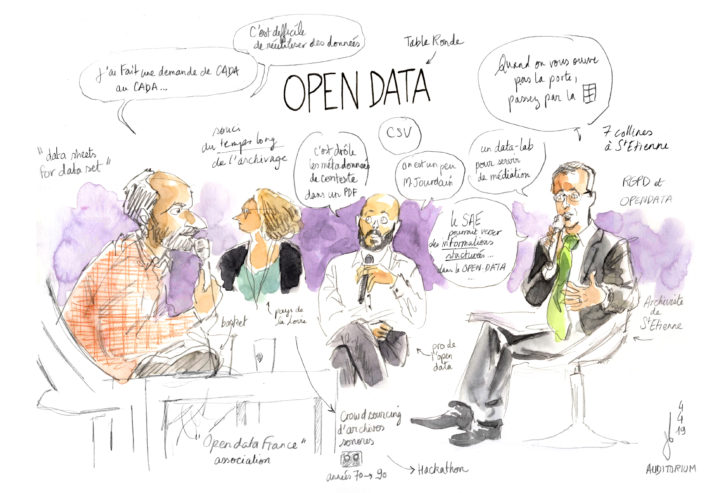 C'est difficile
de réutiliser des données
Table Ronde
J'ai fait une demande de CADA
au CADA...
OPEN DATA
Quand on vous ouvre
pas la porte,
passez par la
CSV
7 collines
à St Etienne
"data sheets
for data set"
souci
du temps long
de l'archivage
c'est drôle
les métadonnées
de contexte
dans un PDF
on est un peu
M. Jourdain
un data-lab
pour servir
de médiation
RGPD et
OPENDATA
le SAE
pourrait verser
des informations
structurées...
dans le OPEN-DATA
Archiviste
de St Etienne
basket
pays de
la Loire
pro de
l'open
data
"Opendata France"
association
Crowdsourcing
d'archives
sonores
années 70 → 90
→ Hackathon
4
4
19
AUDITORIUM